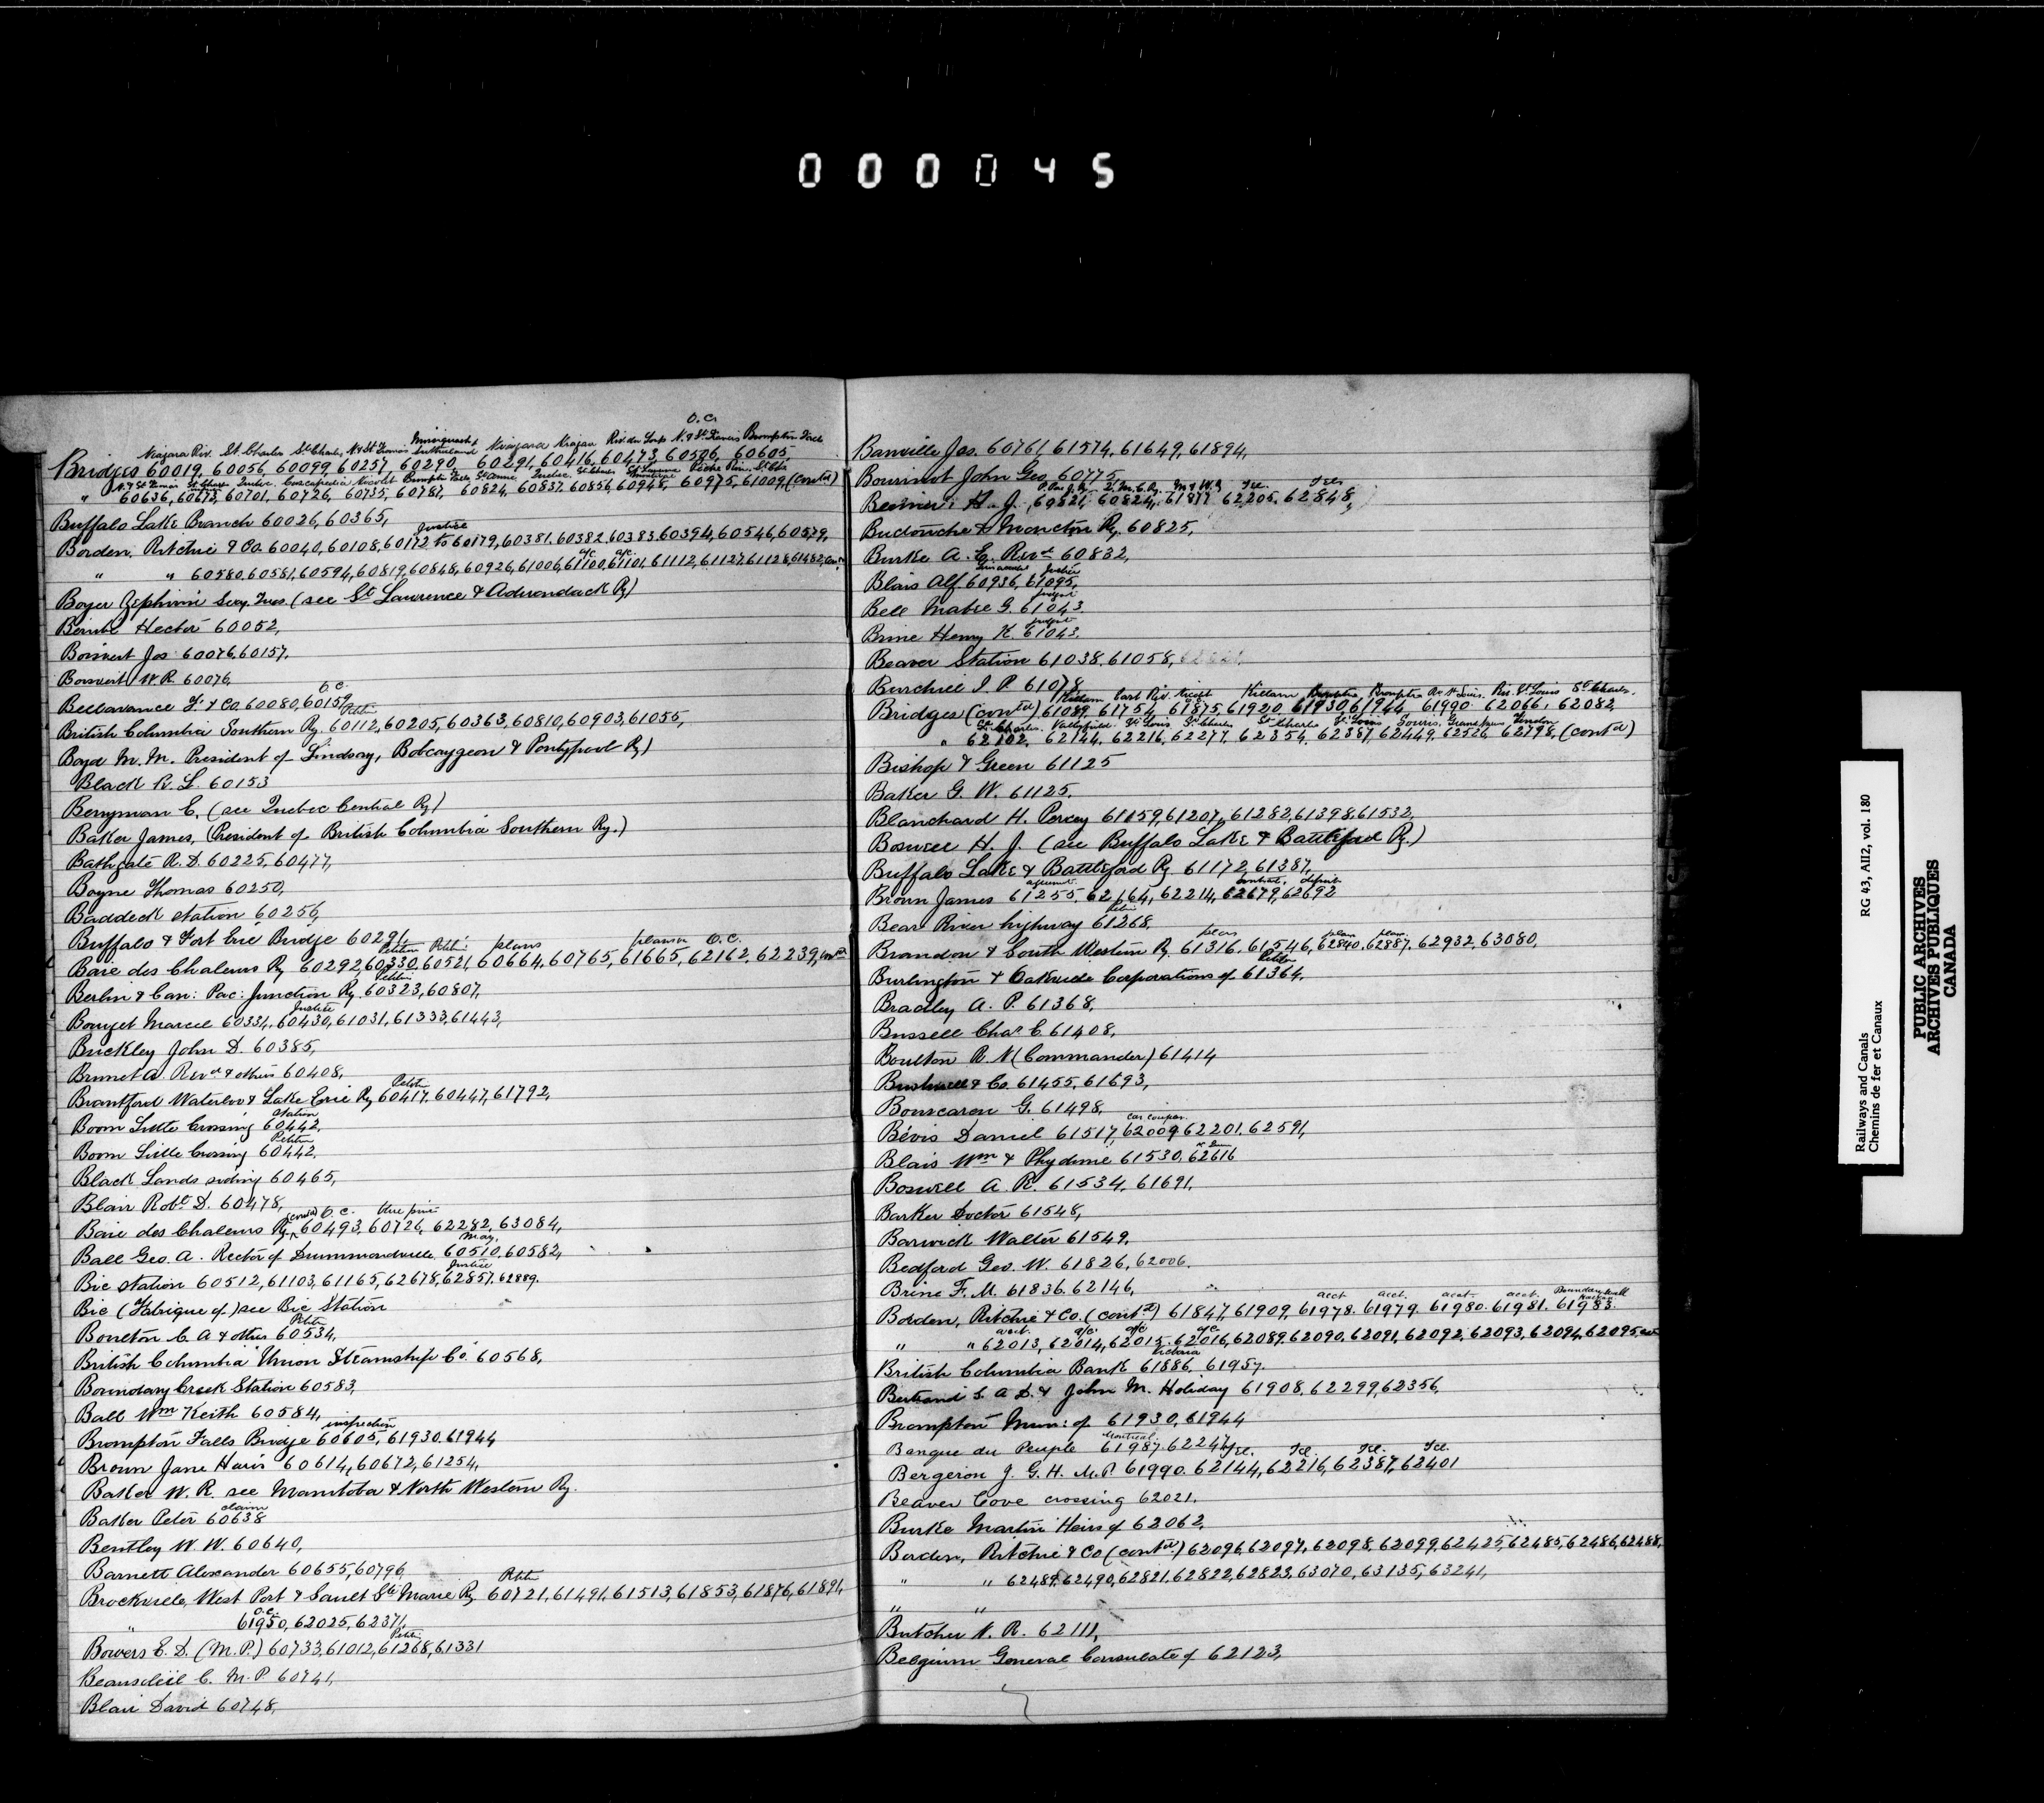 000045
O.C.
Niagara Riv. St. Charles St Charles, N. & St Francis Sutherland Niagara Niagara Riv. du Loup N. & St. Francis Brompton Falls
Bridges 60019, 60056, 60099, 60257, 60290, 60291, 60416, 60473, 60506, 60605,
" 60636, 60673, 60701, 60726, 60735, 60787, 60824, 60837, 60856, 60948, 60975, 61009, (Contd)
Buffalo Lake Branch 60026, 60365,
Justice
Borden, Ritchie & Co. 60040, 60108, 60172 to 60179, 60381, 60382, 60383, 60394, 60546, 60579,
a/c. a/c.
" " 60580, 60581, 60594, 60819, 60848, 60926, 61006, 61100, 61101, 61112, 61127, 61128, 61482,
Boyer Zephirin Secy. Treas (see St Lawrence & Adirondack Ry)
Hector 60052,
Boisvert Jos 60076, 60157,
Boisvert W. R. 60076,
O.C.
Bellavance F. & Co 60080, 60159,
Petitn
British Columbia Southern Ry. 60112, 60205, 60363, 60810, 60903, 61055,
Boyd M. M. President of Lindsay, Bobcaygeon & Pontypool Ry)
Black R. L. 60153
Berryman E. (see Quebec Central Ry)
Baker James, (President of British Columbia Southern Ry.)
Bathgate R. D. 60225, 60477,
Bayne Thomas 60250,
Baddeck Station 60256,
Buffalo & Fort Erie Bridge 60291,
Petition Petitn: plans plans O.C.
Baie des Chaleurs Ry 60292, 60330, 60521, 60664, 60765, 61665, 62162, 62239, Contd
Petitn
Berlin & Can: Pac: Junction Ry. 60323, 60807,
Justice
Bouget Marcel 60334, 60430, 61031, 61333, 61443,
Buckley John D. 60385,
Brunet A. Revd & others 60408,
Petitn
Brantford Waterloo & Lake Erie Ry 60417, 60447, 61792,
Station
Boom Little Crossing 60442,
Petition
Boom Little Crossing 60442,
Black Lands siding 60465,
Blair Robt. D. 60478,
(contd) O.C.
Baie des Chaleurs Ry. 60493, 60726, 62282, 63084,
May,
Ball Geo. A. Rector of Drummondville, 60510, 60582,
Justice
Bic Station 60512, 61103, 61165, 62678, 62857, 62889.
Bic (Fabrique of) see Bic Station
Petitn
Boulton C. A & others 60534,
British Columbia Union Steamship Co. 60568,
Boundary Creek Station 60583,
Ball Wm Keith 60584,
inspection
Brompton Falls Bridge 60605, 61930, 61944
Brown Jane Haris 60614, 60672, 61254,
Baker W. R. see Manitoba & North Western Ry.
claim
Baker Peter 60638
Bentley W. W. 60640,
Barnett Alexander 60655, 60796,
Petitn
Brockville, West Port & Sault Ste Marie Ry. 60721, 61491, 61513, 61853, 61876, 61891,
O.C.
" 61950, 62025, 62371,
Petitn
Bowers E. D. (M.P.) 60733, 61012, 61268, 61331
Beausoleil C. M. P 60741,
Blair David 60748,
Banville Jos. 60761, 61574, 61649, 61894,
Bourinot John Geo. 60775,
Tel. Tel.
Bernier H. J. 60821, 60824, 61877, 62205, 62848,
Buctouche & Moncton Ry. 60825,
Burke A. E. Revd 60832,
Justice
Blais Alf. 60936, 61095,
Bell Mabel G. 61043.
Brine Henry K. 61043.
Beaver Station 61038, 61058,
Burchill J. P. 61078
Killam East Riv. Nicolet Killam Brompton Brompton Riv. St Louis. Riv. St Louis St Charles.
Bridges (contd) 61089, 61754, 61875, 61920, 61930, 61944, 61990, 62066, 62082,
St Charles Valleyfield St Louis St Charles St Charles St Louis Souris, Grand Narrows
" 62102, 62144, 62216, 62277, 62354, 62387, 62449, 62526, 62798, (contd)
Bishop & Green 61125
Baker G. W. 61125.
Blanchard H. Percy 61159, 61207, 61282, 61398, 61532,
Boswell H. J. (see Buffalo Lake & Battleford Ry.)
Buffalo Lake & Battleford Ry. 61172, 61387,
contract, deposit
Brown James 61255, 62164, 62214, 62679, 62692
Petitn
Bear River highway 61268,
plan plan plan
Brandon & South Western Ry. 61316, 61546, 62840, 62887, 62932, 63080,
Petitn
Burlington & Oakville Corporations of 61364,
Bradley A. P. 61368,
Bussell Chas. C 61408,
Boulton R. N (Commander) 61414
Bushnell & Co. 61455, 61693,
Bouscaren G. 61498,
car couper.
Bévis Daniel 61517, 62009, 62201, 62591,
Blais Wm & Phydime 61530, 62616
Boswell A. R. 61534, 61691,
Barker Doctor 61548,
Barwick Walter 61549,
Bedford Geo. W. 61826, 62006.
Brine F. M. 61836, 62146,
acct. acct. acct. acct. Boundary wall
Borden, Ritchie & Co. (contd) 61847, 61909, 61978, 61979, 61980, 61981, 61983.
acct. a/c. a/c a/c
" " 62013, 62014, 62015, 62016, 62089, 62090, 62091, 62092, 62093, 62094, 62095,
Victoria
British Columbia Bank 61886, 61957.
Bertrand S. A. D. & John M. Holiday 61908, 62299, 62356,
Brompton Mun: of 61930, 61944
Montreal.
Banque du Peuple 61987, 62247,
Tel. Tel. Tel. Tel.
Bergeron J. G. H. M.P. 61990, 62144, 62216, 62387, 62401
Beaver Cove crossing 62021,
Burke Martin Heirs of 62062,
Borden, Ritchie & Co (contd) 62096, 62097, 62098, 62099, 62425, 62485, 62486, 62488,
" " 62489, 62490, 62821, 62822, 62823, 63070, 63135, 63241,
" "
Butcher N. R. 62111,
Belgium General Consulate of 62123,
Railways and Canals RG 43, AII2, vol. 180
Chemins de fer et Canaux
PUBLIC ARCHIVES
ARCHIVES PUBLIQUES
CANADA